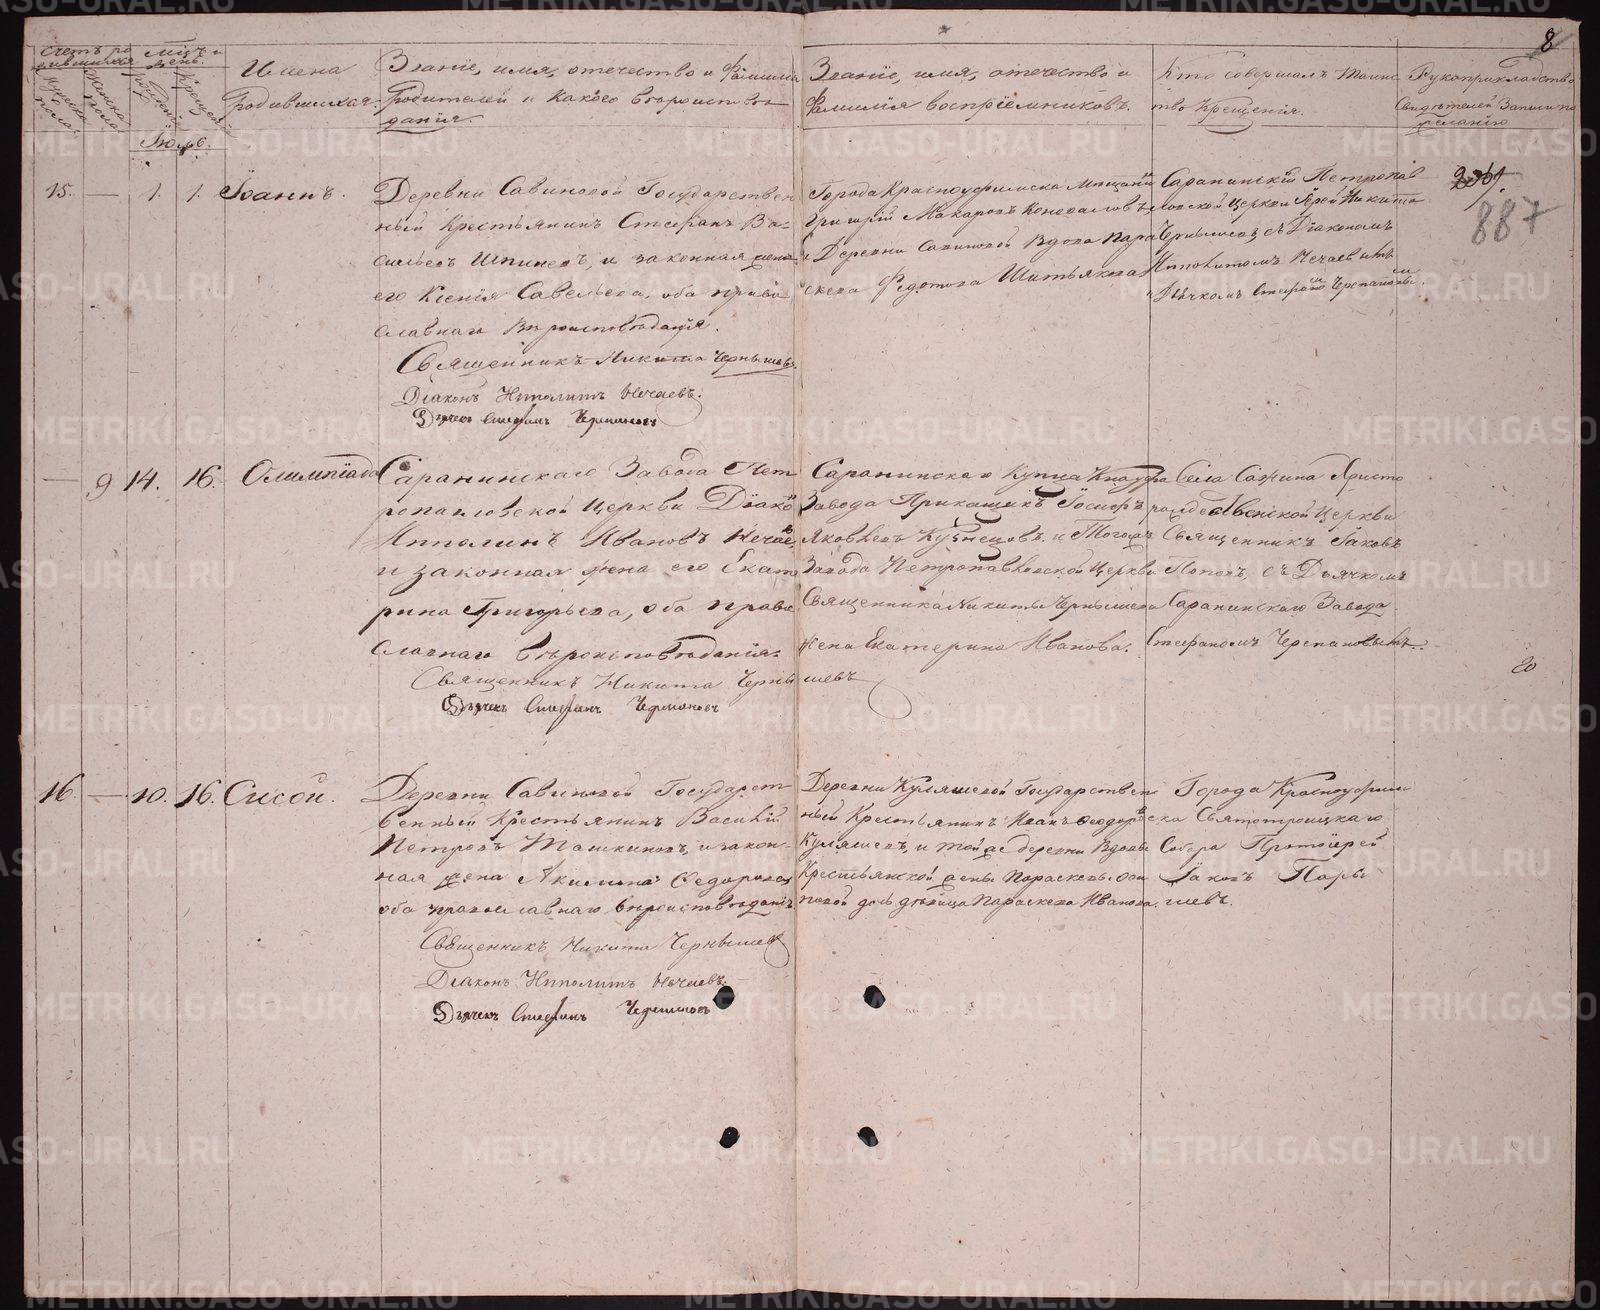 8
Счетъ ро
дившихся
Мѣсяцъ и
день.
Мужеска
пола
Женска
пола
рожденія
крещенія
Имена
родившихся.
Званіе, имя, отечество и фамилія
родителей и какого вѣроисповѣ
данія.
Званіе, имя, отечество и
фамилія воспріемниковъ.
Кто совершалъ таинс
тво крещенія.
Рукоприкладство
свидѣтелей записи по
желанію
15. — 1. 1. Іоаннъ.
Деревни Савиновой Государствен
ный Крестьянинъ Стефанъ Ва-
сильевъ и законная жена
его Ксенія Савельева, оба право
славнаго вѣроисповѣданія.
Священникъ Никита Чернышевъ
Діаконъ Ипполитъ Нечаевъ.
Дьячекъ Стефанъ Черепановъ
Города Красноуфимска Мѣщанинъ
Григорій Макаровъ Коновалов
и Деревни Савиновой вдова Пара
скева Федотова
Саранинской Петропав
ловской Церкви Іерей Никита
Чернышевъ, съ Діакономъ
Ипполитомъ Нечаевымъ
и Дьячкомъ Стефаномъ Черепановым
887
— 9 14. 16. Олимпіада
Саранинскаго Завода Пет
ропавловской Церкви Діако
Ипполитъ Ивановъ Нечаев
и законная жена его Екате
рина Григорьева, оба право
славнаго вѣроисповѣданія.
Священникъ Никита Чернышевъ
Дьячекъ Стефанъ Черепановъ
Саранинскаго Купца Кнауфа
Завода Прикащикъ Іосифъ
Яковлевъ Кузнецовъ и Тогожъ
Завода Петропавловской Церкви
Священника Никиты Чернышева
жена Екатерина Иванова.
Села Сажина Христо
рождественской Церкви
Священникъ Іаковъ
Поповъ, съ Дьячкомъ
Саранинскаго Завода
Стефаномъ Черепановымъ.
20
16. — 10. 16. Сисой.
Деревни Савиновой Государст
венный Крестьянинъ Василій
Петровъ Ташкиновъ, и закон-
ная жена Акилина Федорова
оба православнаго вѣроисповѣданія
Священникъ Никита Чернышевъ
Діаконъ Ипполитъ Нечаевъ
Дьячекъ Стефанъ Черепановъ
Деревни Куляшевой Государствен
ный Крестьянинъ Иванъ Феодоров
Куляшевъ, и той же деревни вдовы
Крестьянской жены Параскевы
дочь дѣвица Параскева Иванова.
Города Красноуфим
ска Святотроицкаго
Собора Протоіерей
Іаковъ
METRIKI.GASO-URAL.RU